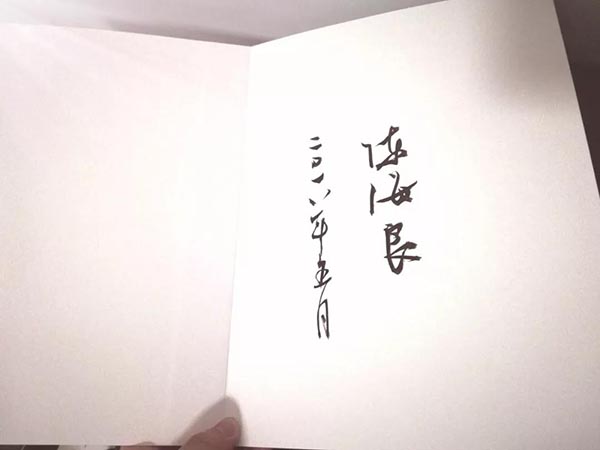 陈海良
二〇一八年五月